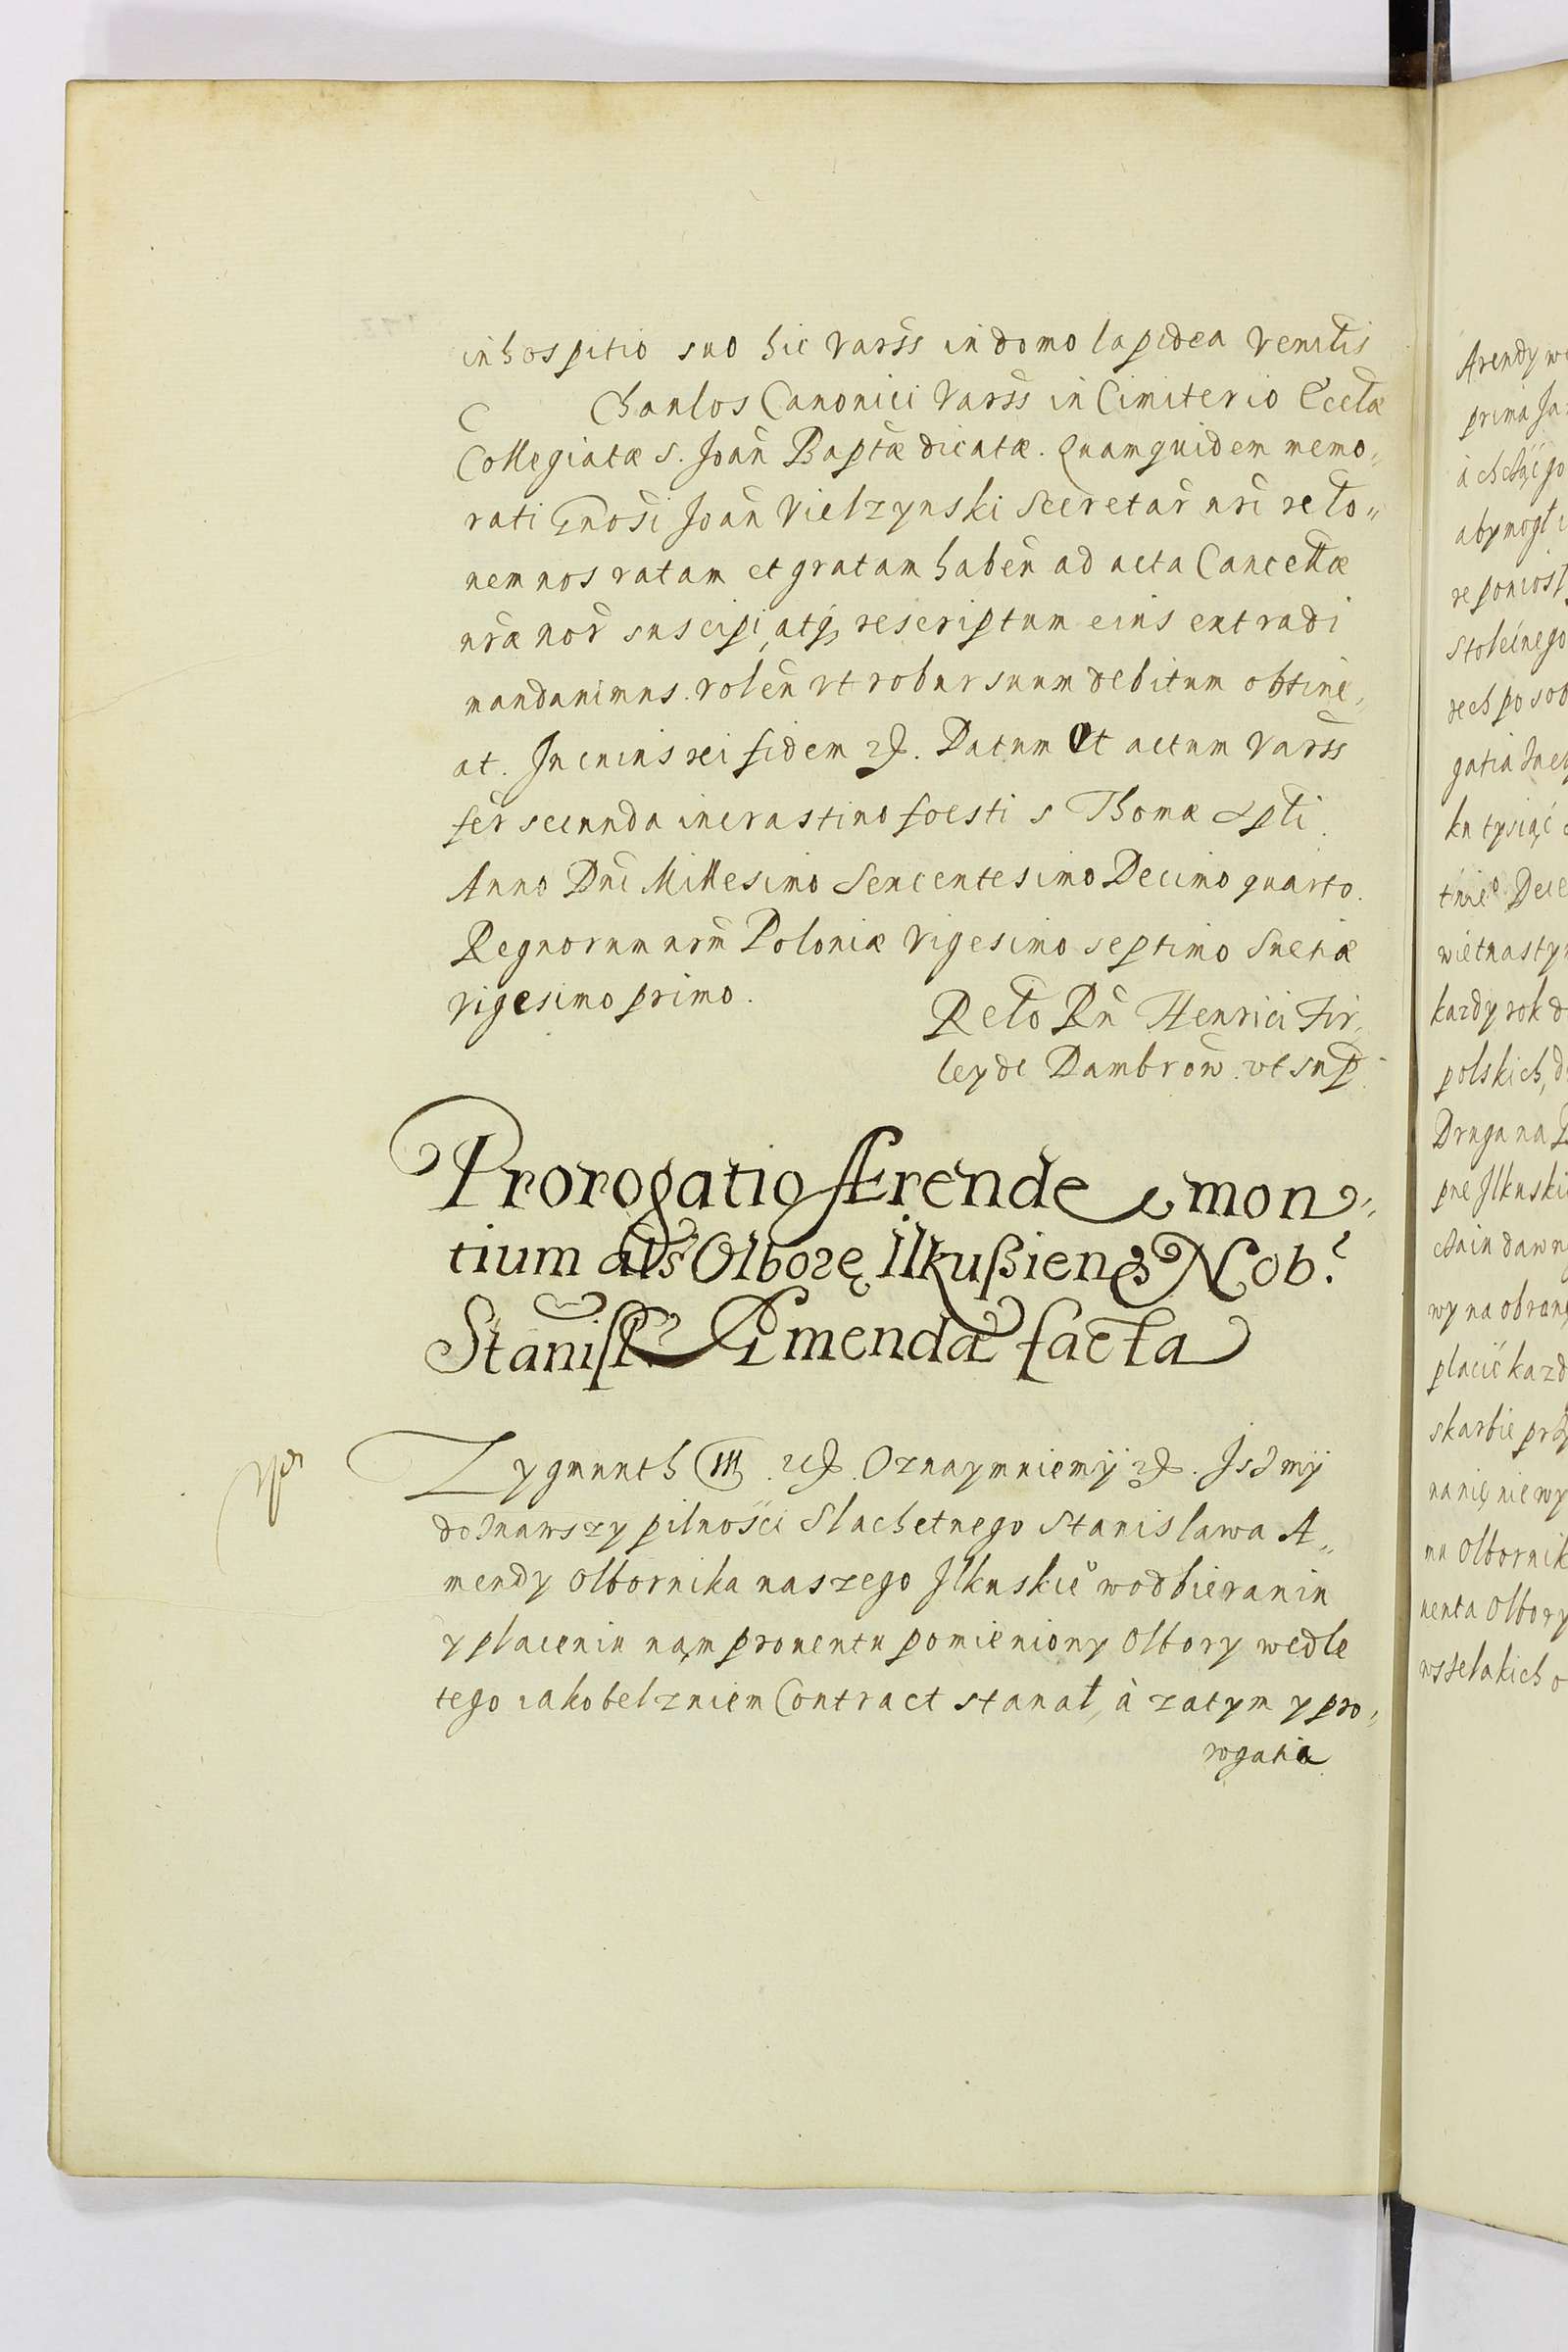 in hospitio suo hic Varss in domo lapidea Venitis
C Chanlos Canonici Varss in Cimiterio Eccłæ
Collegiatæ S. Joan̄ Baptæ dicatæ. Quamquidem memo„
rati Gnosi Joan̄ Vielzynski Secretar̄ nri relo„
nem nos ratam et gratam haben̄ ad acta Cancellæ
nræ nor̄ suscipi, atq, rescriptum eius extradi
mandauimus. volen̄ vt robur suum debitum obtine„
at. In cuius rei fidem etc. Datum et actum Varss
fer̄ secunda in crastino foesti s Thomæ Apli.
Anno Dni Millesimo Sexcentesimo Decimo quarto.
Regnorum nrm̄ Poloniæ Vigesimo septimo Suetiæ
vigesimo primo.
Relo Rn̄ Henrici Fir„
ley de Dambrow̄. vt sup
Prorogatio Ærende mon„
tium als Olborę Ilkußien Nob.
Stanisl Amenda facta
Zygmunth III etc. Oznaymuiemÿ etc. Isz mÿ
doznawszy pilności Slachetnego Stanislawa A„
mendy Olbornika naszego Ilkuskieo w odbieraniu
y placeniu nąm prouentu pomieniony Olbory wedle
tego iako bel z niem Contract stanał, à zatym y pro„
rogatia
Arendy
prima
aby mogł
Stolecnego
rech po sob
gatia
ku tysiąć
Dece
każdy rok d
polskich, d
Druga na
pne Ilkuski
wy na obranę
placić kazd
skarbie
na nię nie wy
mu Olbornik
uenta Olbory
wszelakich o